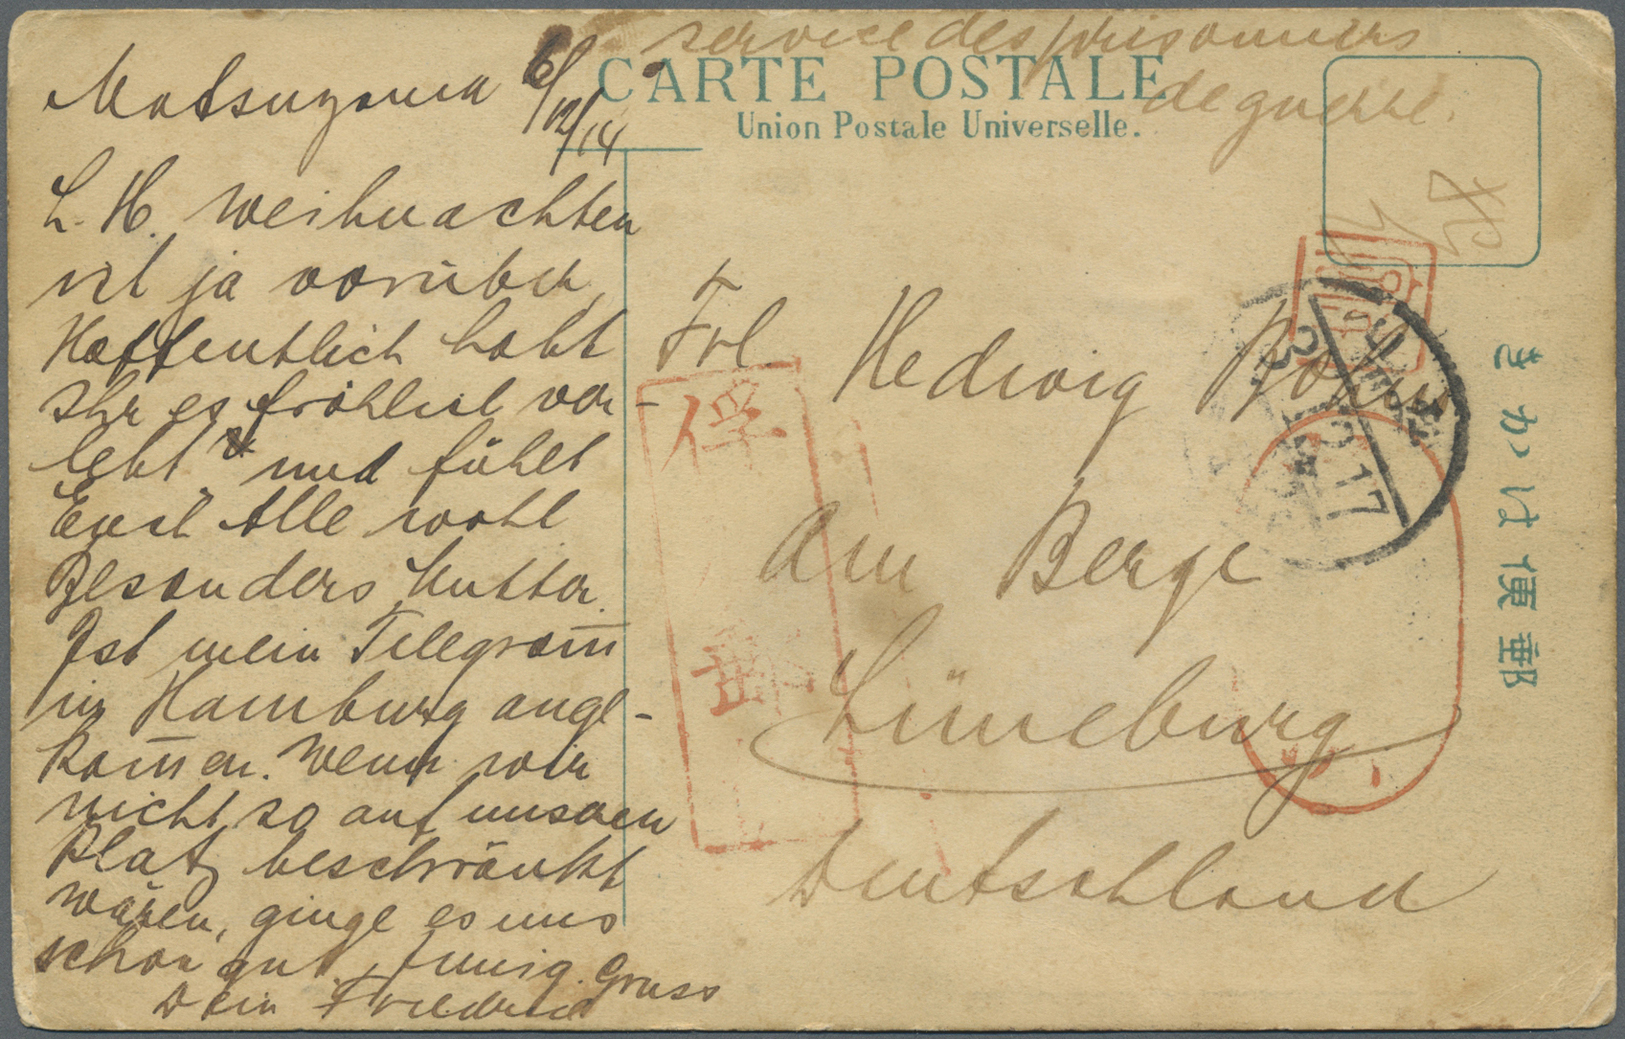 service des prisonniers
de guerre.
CARTE POSTALE
Union Postale Universelle.
Matsuyama 6/12/14
L. H. Weihnachten
ist ja vorüber
Hoffentlich habt
Ihr es fröhlich ver-
lebt und fühlt
Euch Alle wohl
Besonders Mutter.
Ist mein Telegram̅
in Hamburg ange-
kom̅en. Wenn wir
nicht so auf unseren
Platz beschränkt
wären, ginge es uns
schon gut. Innig. Gruss
Dein Friedrich
Frl. Hedwig
Am Berge
Lüneburg
Deutschland
きかは便郵
俘